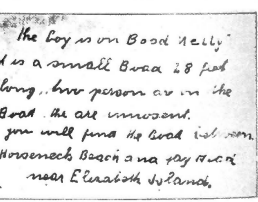 the boy is on Boad Nelly
is a small Boad 28 feet
long, two person ar in the
Boat. the are innosent.
you will find the Boat between
Horseneck Beach and gay Head
near Elizabeth Island.